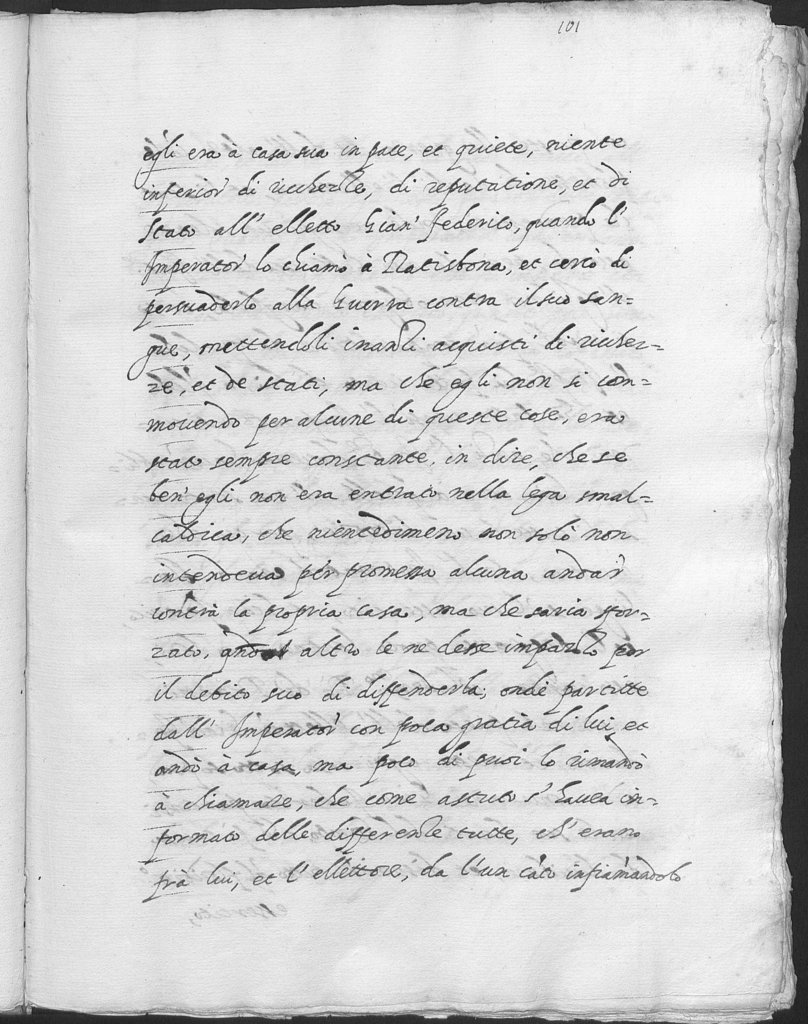 101
egli era à casa sua in pace, et quiete, niente
inferior di ricchezze, di reputatione, et di
stato all' elletto Gian' Federico, quando l'
Imperator lo chiamò à Ratisbona, et cercò di
persuaderlo alla Guerra contra il suo san=
gue, mettendoli inanzi acquisti di ricchez=
ze, et de stati, ma che egli non si com=
movendo per alcune di queste cose, era
stato sempre constante, in dire, che se
ben' egli non era entrato nella lega smal=
caldica, che nientedimeno non solo non
intendeva per promessa alcuna andar
contra la propria casa, ma che saria sfor=
zato, altro le ne desse impazzo per
il debito suo di diffenderla, onde partitte
dall' Imperator con poca gratia di lui, et
andò à casa, ma poco di puoi lo rimandò
à chiamare, che come astuto s' havea in=
formato delle differenze tutte, ch' erano
frà lui, et l' ellettore, da l'un cãto infiamandolo